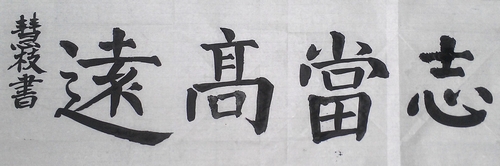 志當高遠
慧枝書